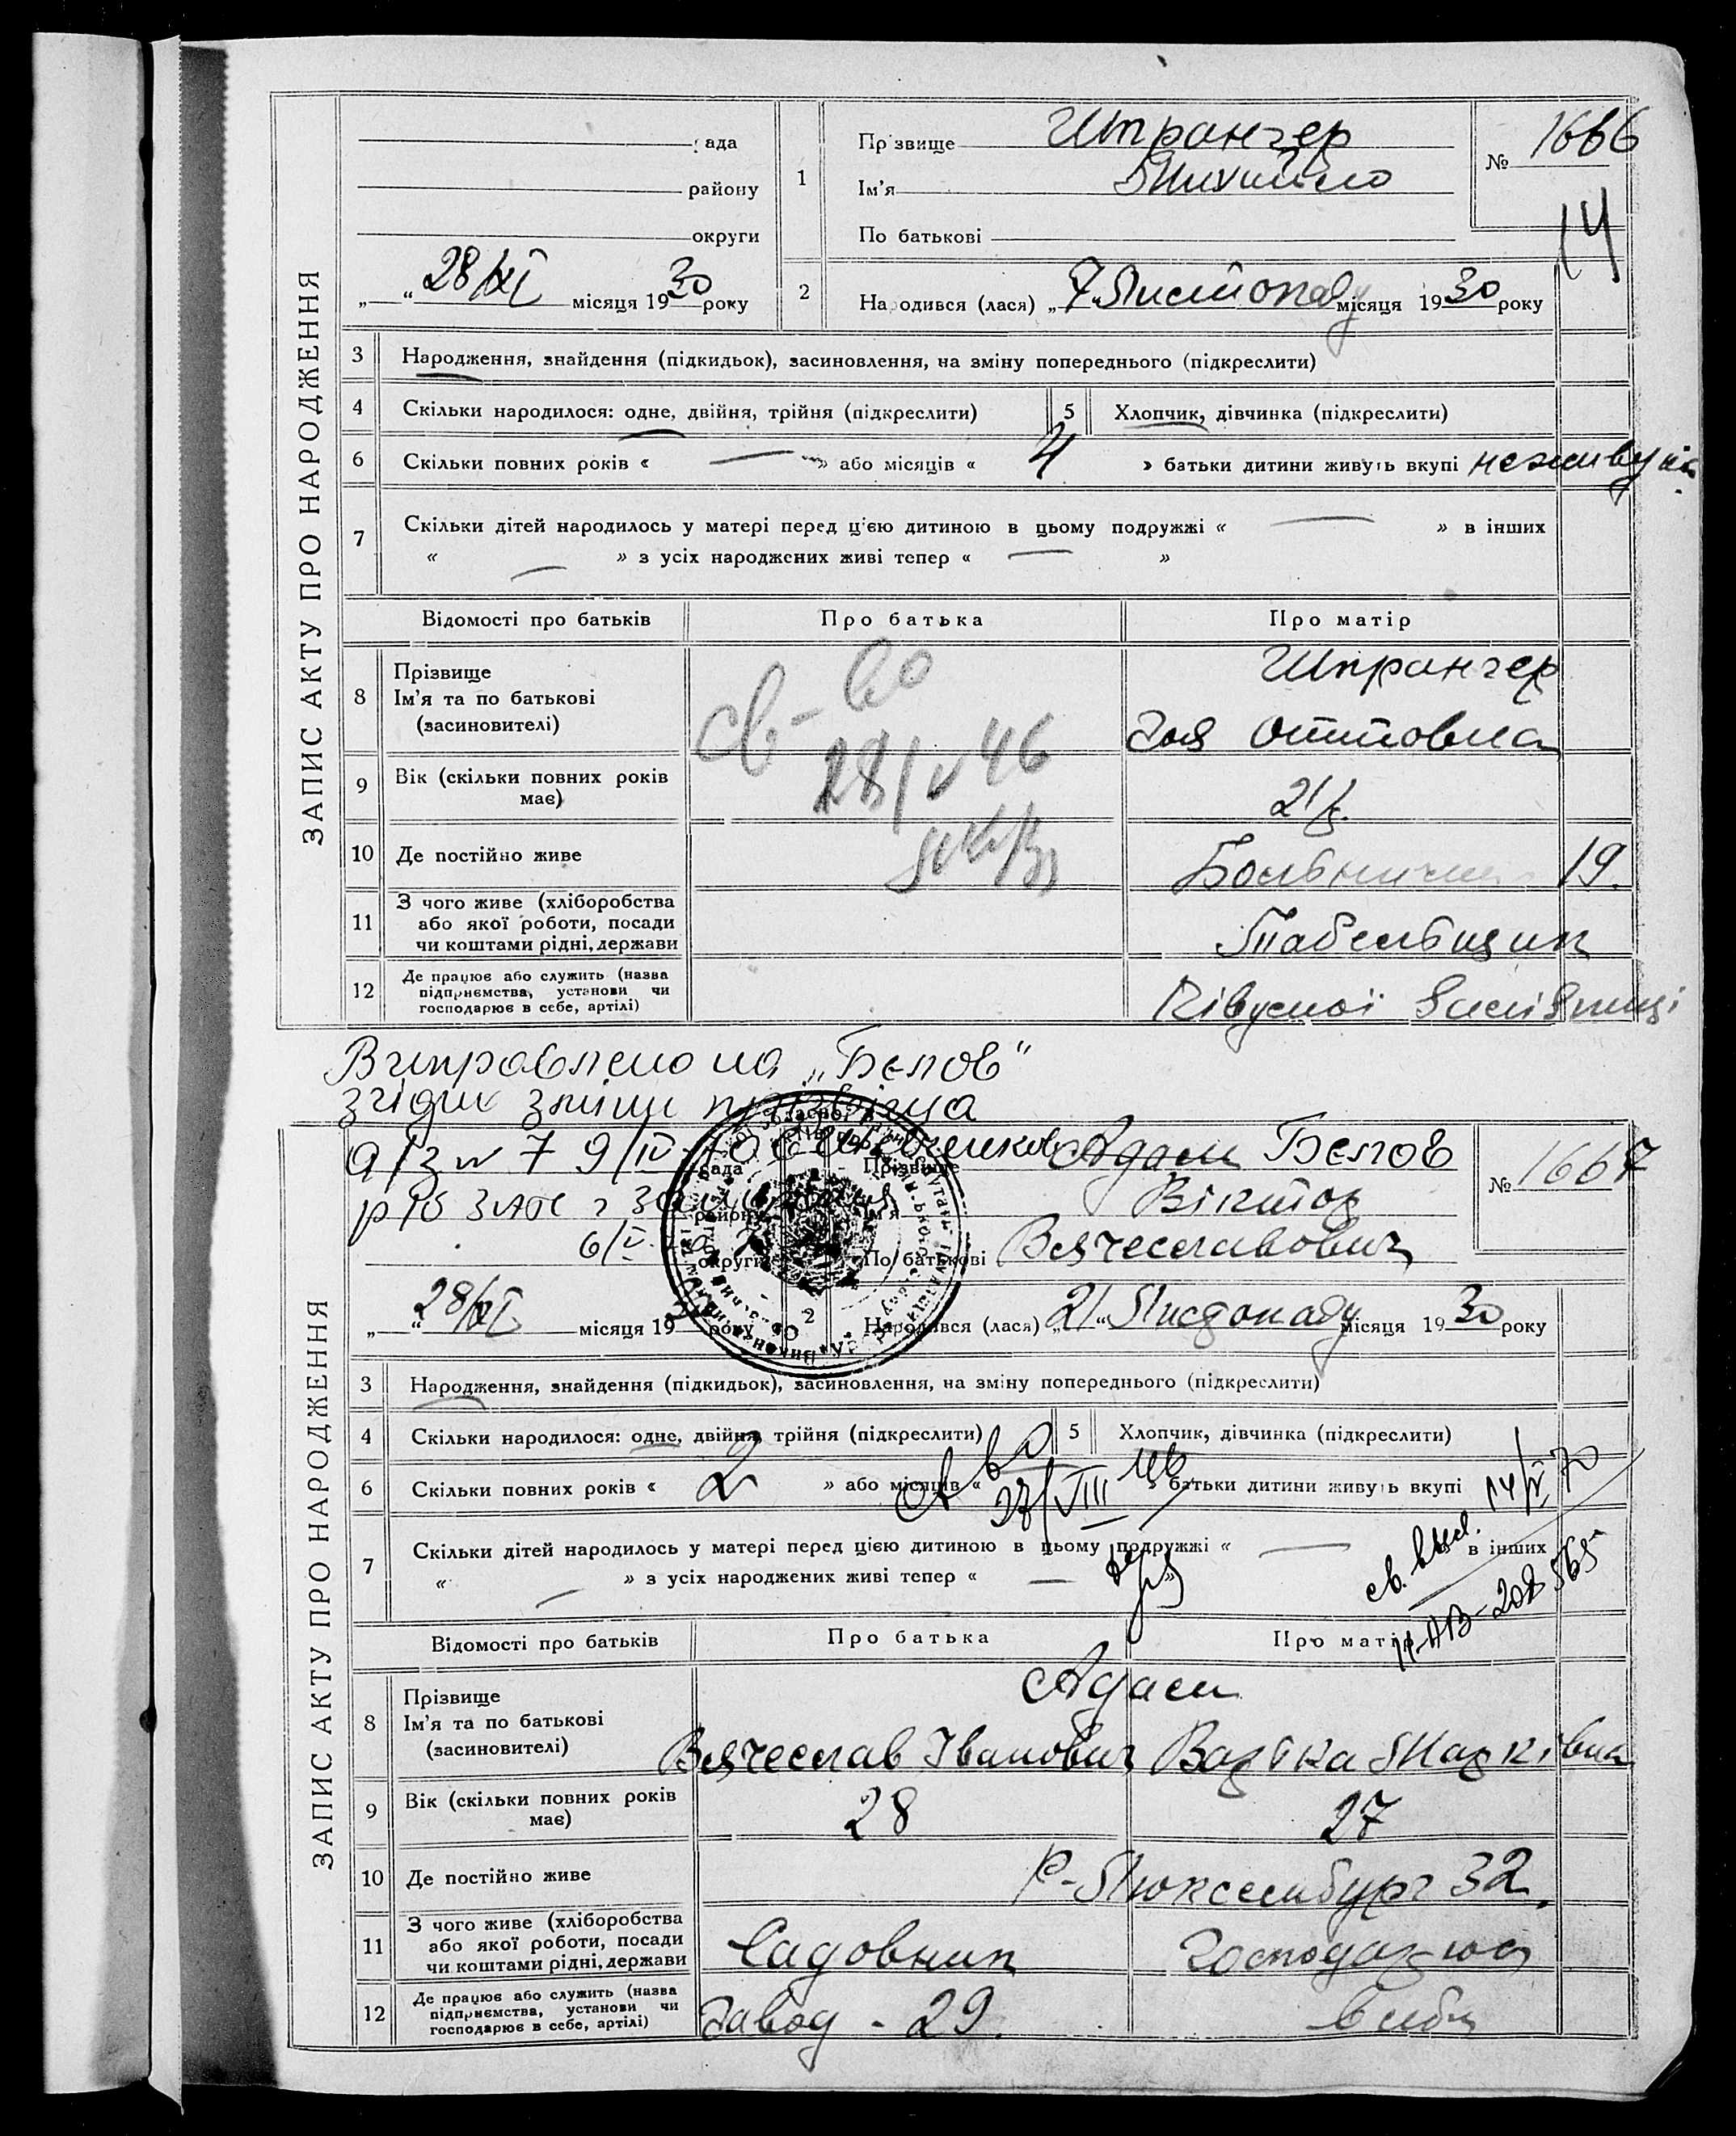 ЗАПИС АКТУ ПРО НАРОДЖЕННЯ
рада
району
округи
„ “ 28/XI місяця 1930 року
1
Прізвище Штрангер
Ім'я Михайло
По батькові
№ 1666
14
2
Народився (лася) „7 Листопаду місяця 1930 року
3 Народження, знайдення (підкидьок), засиновлення, на зміну попереднього (підкреслити)
4 Скільки народилося: одне, двійня, трійня (підкреслити) 5 Хлопчик, дівчинка (підкреслити)
6 Скільки повних років « — » або місяців « 4 » батьки дитини живуть вкупі не живуть
7 Скільки дітей народилось у матері перед цією дитиною в цьому подружжі « — » в інших
« — » з усіх народжених живі тепер « — »
Відомості про батьків Про батька Про матір
8 Прізвище
Ім'я та по батькові
(засиновителі)
Штрангер
Зоя Оттовна
св-во
28/V 46
9 Вік (скільки повних років має)
21 р.
10 Де постійно живе
19.
11 З чого живе (хліборобства або якої роботи, посади чи коштами рідні, держави
Табельщик
12 Де працює або служить (назва підприємства, установи чи господарює в себе, артілі)
Виправлено на „Бєлов"
згідно зміни прізвища
а/з № 7 9/IV
ЗАПИС АКТУ ПРО НАРОДЖЕННЯ
рада
району
округи
„ “ 28/XI місяця 19 року
Прізвище Адам Бєлов
Ім'я Віктор
По батькові Вячеславович
№ 1667
2
Народився (лася) „21“ Листопаду місяця 1930 року
3 Народження, знайдення (підкидьок), засиновлення, на зміну попереднього (підкреслити)
4 Скільки народилося: одне, двійня, трійня (підкреслити) 5 Хлопчик, дівчинка (підкреслити)
6 Скільки повних років « 2 » або місяців « » батьки дитини живуть вкупі
св во
27/VIII 46
7 Скільки дітей народилось у матері перед цією дитиною в цьому подружжі « — » в інших
« — » з усіх народжених живі тепер « — »
св. выд. 14/V 70
Відомості про батьків Про батька Про матір
8 Прізвище
Ім'я та по батькові
(засиновителі)
Адам
Вячеслав Іванович Варька Марківна
9 Вік (скільки повних років має)
28 27
10 Де постійно живе
Р-Люксембург 32
11 З чого живе (хліборобства або якої роботи, посади чи коштами рідні, держави
Садовник Господарює
12 Де працює або служить (назва підприємства, установи чи господарює в себе, артілі)
Завод - 29.
в себе